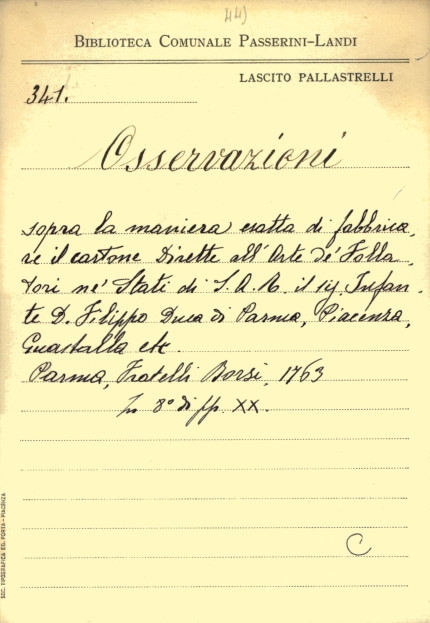 44)
BIBLIOTECA COMUNALE PASSERINI-LANDI
LASCITO PALLASTRELLI
341.
Osservazioni
sopra la maniera esatta di fabbrica,
re il cartone Dirette all'Arte de' Folla,
tori ne' Stati di S. A. R. il sig. Infan-
te D. Filippo Duca di Parma, Piacenza,
Guastalla etc.
Parma, Fratelli Borsi, 1763
In 8° di pp. XX.
C
SOC. TIPOGRAFICA ED. PORTA - PIACENZA